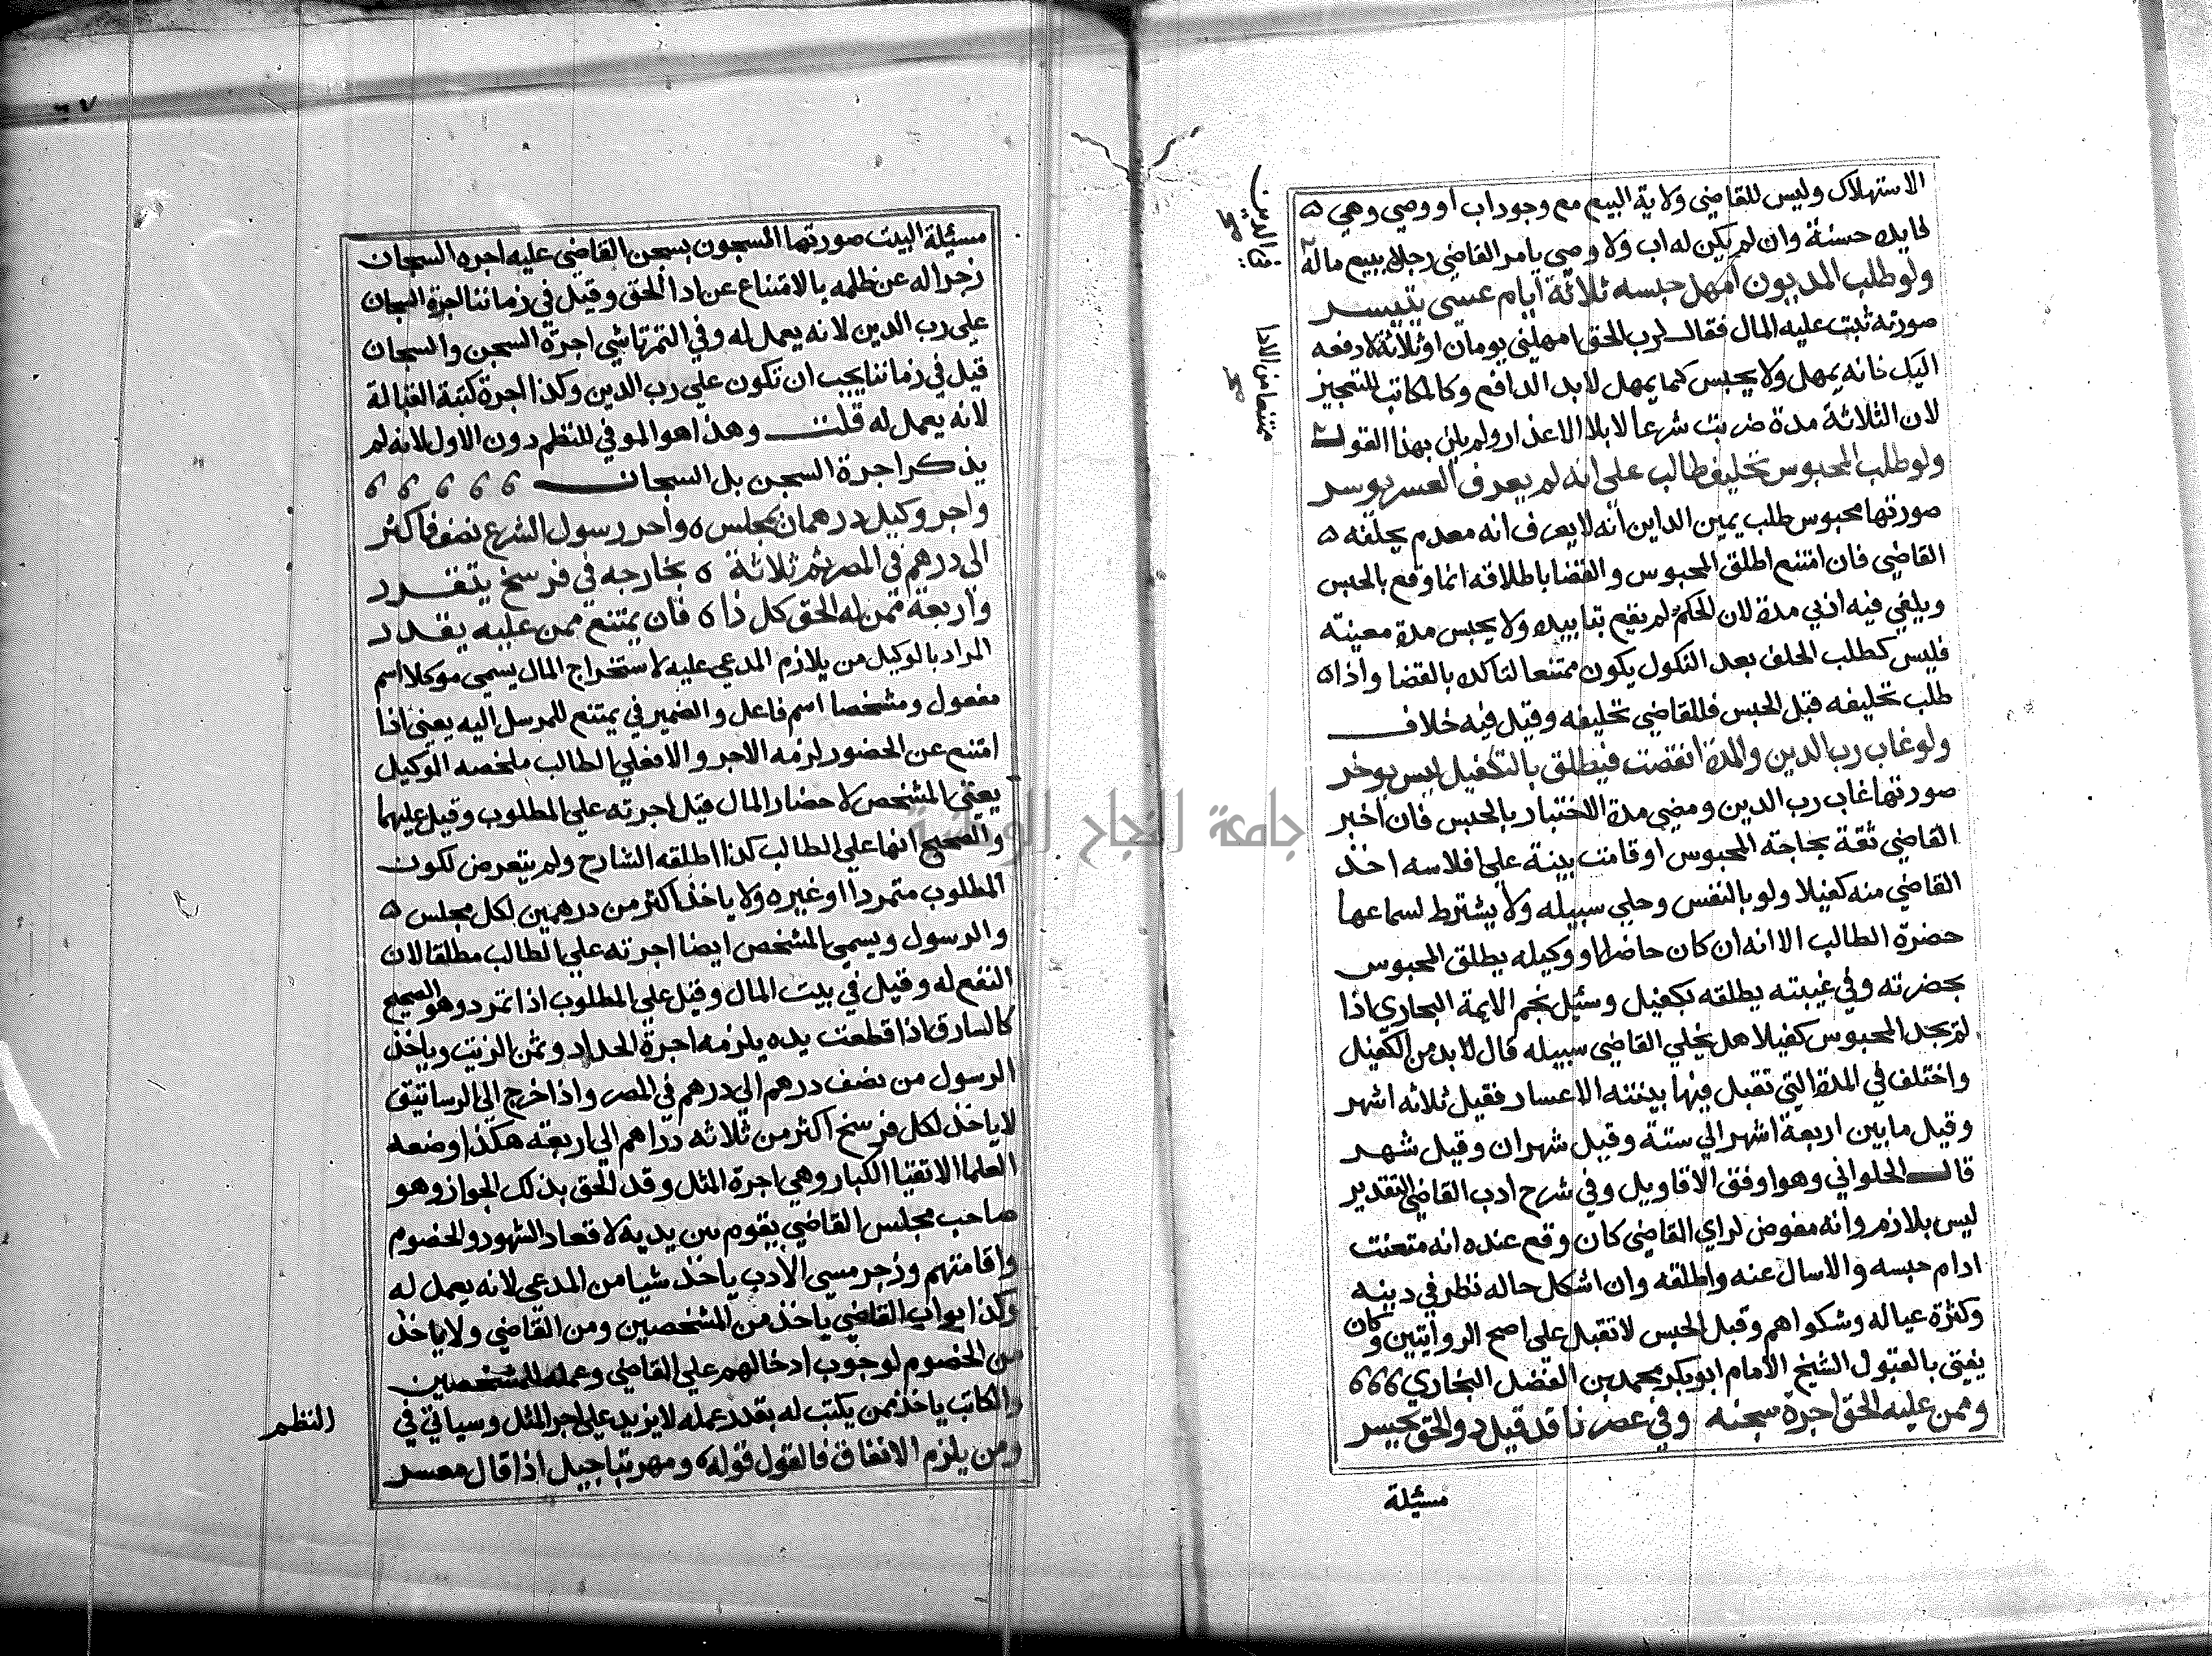 الاستهلاك وليس للقاضي ولاية البيع مع وجود اب او وصي وهي ٥
فايدة حسنة وان لم يكن له اب ولا وصي يامر القاضي رجلا ببيع ماله
ولو طلب المديون امهل حبسه ثلاثة ايام عسى يتيسر
صورته ثبت عليه المال فقال لرب الحق امهلني يومان او ثلاثة لادفعه
اليك فانه يمهل ولا يحبس كما يمهل لابد الدافع وكالمكاتب للتعجيز
لان الثلاثة مدة ضربت شرعا لابلا الاعذار ولم يكن بهذا القول
ممتنعا من الادا
ولو طلب المحبوس تحليف طالب على انه لم يعرف العسر يوسر
صورتها محبوس طلب يمين الداين انه لا يعرف انه معدم يحلفه ٥
القاضي فان امتنع اطلق المحبوس والقضا باطلاقه انما وقع بالحبس
ويلغي فيه ادني مدة لان الحكم لم يقع بتابيده ولا يحبس مدة معينة
فليس كطلب الحلف بعد النكول يكون ممتنعا لتاكده بالقضا واذا ٥
طلب تحليفه قبل الحبس فللقاضي تحليفه وقيل فيه خلاف
ولو غاب رب الدين والمدة انقضت فيطلق بالتكفيل ليس يوخر
صورتها غاب رب الدين ومضي مدة الاختبار بالحبس فان اخبر
القاضي ثقة بحاجة المحبوس او قامت بينة علي افلاسه اخذ
القاضي منه كفيلا ولو بالنفس وخلي سبيله ولا يشترط لسماعها
حضرة الطالب الا انه ان كان حاضرا او وكيله يطلق المحبوس
بحضرته وفي غيبته يطلقه بكفيل وسئيل نجم الايمة البخاري اذا
لم يجد المحبوس كفيلا هل يخلي القاضي سبيله قال لا بد من الكفيل
واختلف في المدة التي تقبل فيها بينته الاعسار فقيل ثلاثه اشهر
وقيل ما بين اربعة اشهر الي ستة وقيل شهران وقيل شهر
قال الحلواني وهو اوفق الاقاويل وفي شرح ادب القاضي التقدير
ليس بلازم وانه مفوض لراي القاضي كان وقع عنده انه متعنت
ادام حبسه والا سال عنه واطلقه وان اشكل حاله نظر في دينه
وكثرة عياله وشكواهم وقبل الحبس لا تقبل علي اصح الروايتين وكان
يفتي بالقبول الشيخ الامام ابو بكر محمد بن الفضل البخاري ٦٦٦
وممن عليه الحق اجرة سجنه وفي عصرنا قد قيل ذو الحق يخسر
مسئيلة
مسئيلة البيت صورتها المسجون بسجن القاضي عليه اجره السجان
زجرا له عن ظلمه بالامتناع عن ادا الحق وقيل في زماننا اجرة السجان
علي رب الدين لانه يعمل له وفي التمرتاشي اجرة السجن والسجان
قيل في زماننا يجب ان تكون علي رب الدين وكذا اجرة كتبة القبالة
لانه يعمل له قلت وهذا هو الموفي للنظم دون الاول لانه لم
يذكر اجرة السجن بل السجان ٦ ٦ ٦ ٦ ٦
واجر وكيل درهمان بمجلس ٥ واجر رسول الشرع نصف فاكثر
الى درهم في المصر ثم ثلاثة ٥ بخارجه في فرسخ يتقدد
واربعة ممن له الحق كل ذا ٥ فان يمتنع ممن عليه يقدد
المراد بالوكيل من يلازم المدعي عليه لاستخراج المال يسمي موكلا اسم
مفعول ومشخصا اسم فاعل والضمير في يمتنع للمرسل اليه يعني اذا
امتنع عن الحضور لزمه الاجر والا فعلي الطالب ملخصه الوكيل
يعني المشخص لاحضار المال قيل اجرته علي المطلوب وقيل عليهما
والصحيح انها علي الطالب كذا اطلقه الشارح ولم يتعرض لكون
المطلوب متمردا او غيره ولا ياخذ اكثر من درهمين لكل مجلس ٥
والرسول ويسمي المشخص ايضا اجرته علي الطالب مطلقا لان
النفع له وقيل في بيت المال وقيل علي المطلوب اذا تمرد وهو الصحيح
كالسارق اذا قطعت يده يلزمه اجرة الحداد وثمن الزيت وياخذ
الرسول من نصف درهم الي درهم في المصر واذا خرج الي الرساتيق
لا ياخذ لكل فرسخ اكثر من ثلاثه دراهم الي اربعة هكذا وضعه
العلما الاتقيا الكبار وهي اجرة المثل وقد الحق بذلك الجواز وهو
صاحب مجلس القاضي يقوم بين يديه لاقعاد الشهود والخصوم
واقامتهم وزجر مسي الادب ياخذ شيا من المدعي لانه يعمل له
وكذا بواب القاضي ياخذ من المشخصين ومن القاضي ولا ياخذ
من الخصوم لوجوب ادخالهم علي القاضي وعمله للمشخصين
والكاتب ياخذ ممن يكتب له بقدر عمله لا يزيد علي اجر المثل وسياتي في
النظم
ومن يلزم الانفاق فالقول قوله ٥ ومهر بتاجيل اذا قال معسر
جامعة النجاح الوطنية